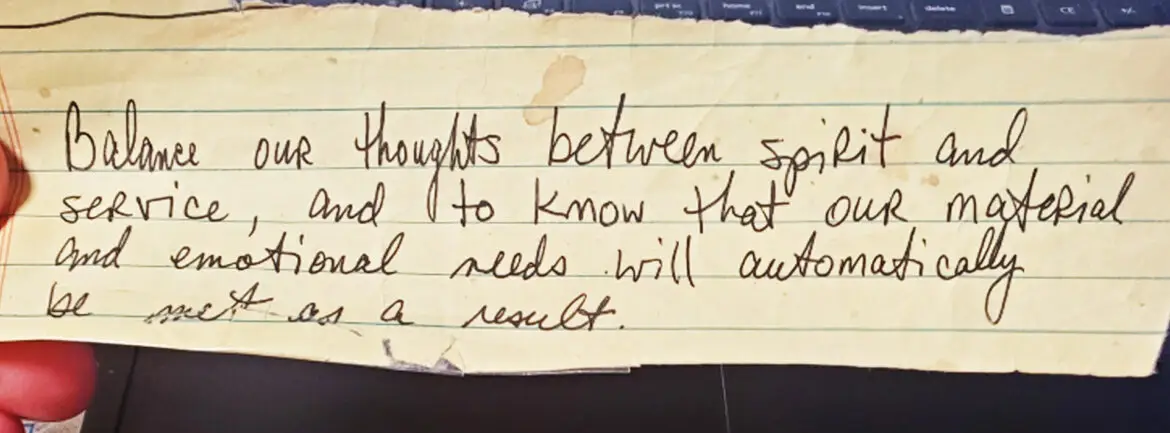 prt sc home end insert delete CE +/-
Balance our thoughts between spirit and
service, and to know that our material
and emotional needs will automatically
be met as a result.